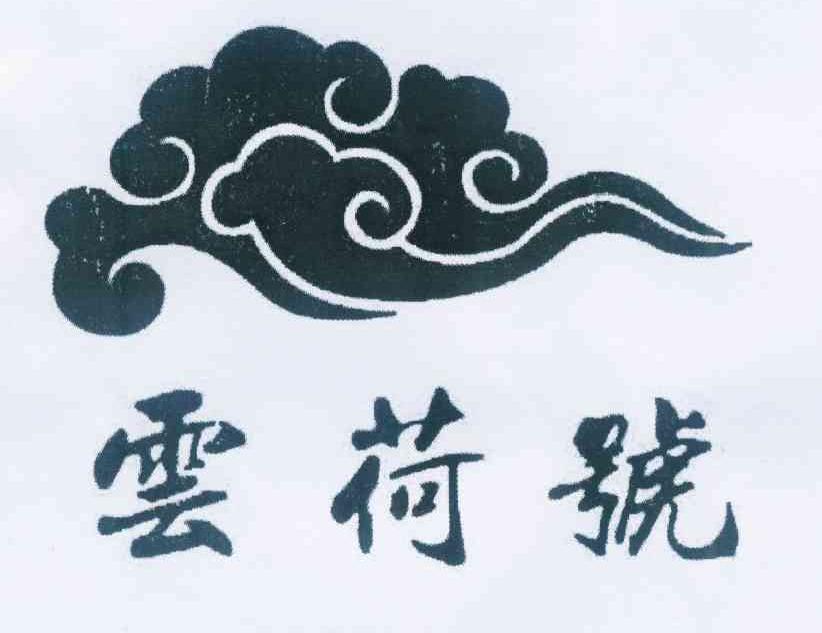 雲荷號